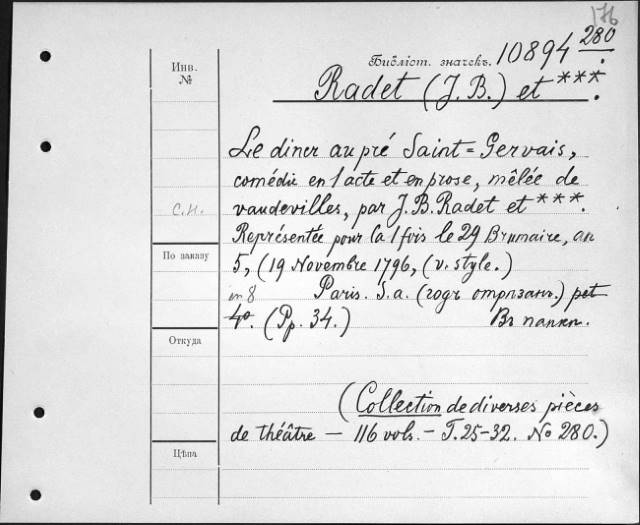 176
Инв. №
Библіот. значекъ. 10894 280.
Radet (J. B.) et ***.
Le diner au pré Saint=Gervais,
comédie en 1 acte et en prose, mêlée de
С.Н. vaudevilles, par J. B. Radet et ***.
Représentée pour la 1 fois le 29 Brumaire, an
По заказу
5, (19 Novembre 1796, (v. style.)
in 8 Paris. S.a. (годъ отрѣзанъ.) pet
4o. (Pp. 34.) Въ папкѣ.
Откуда
(Collection de diverses pièces
de théâtre — 116 vols. — T. 25-32. No 280.)
Цѣна